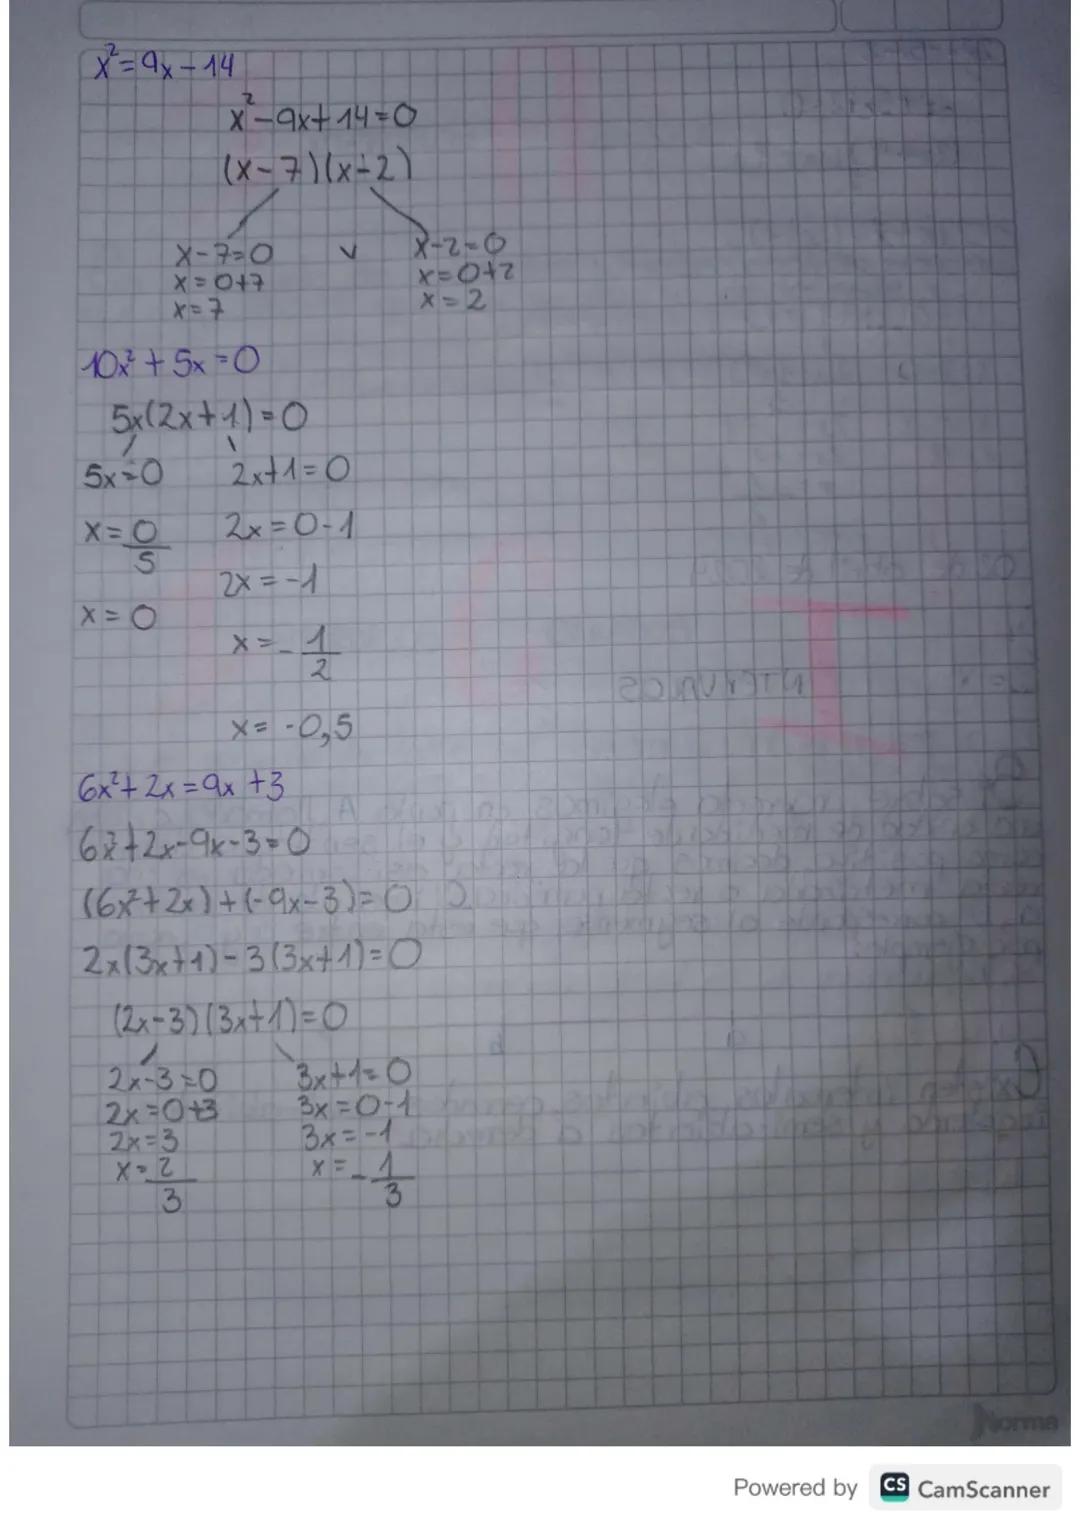 x²=9x-14
x²-9x+14=0
(x-7)(x-2)
x-7=0 v x-2=0
x=0+7 x=0+2
x=7 x=2
10x²+5x=0
5x(2x+1)=0
5x=0 2x+1=0
x=0/5 2x=0-1
2x=-1
x=0
x=-1/2
x=-0,5
6x²+2x=9x+3
6x²+2x-9x-3=0
(6x²+2x)+(-9x-3)=0
2x(3x+1)-3(3x+1)=0
(2x-3)(3x+1)=0
2x-3=0 3x+1=0
2x=0+3 3x=0-1
2x=3 3x=-1
x=2/3 x=-1/3
Norma
Powered by CS CamScanner